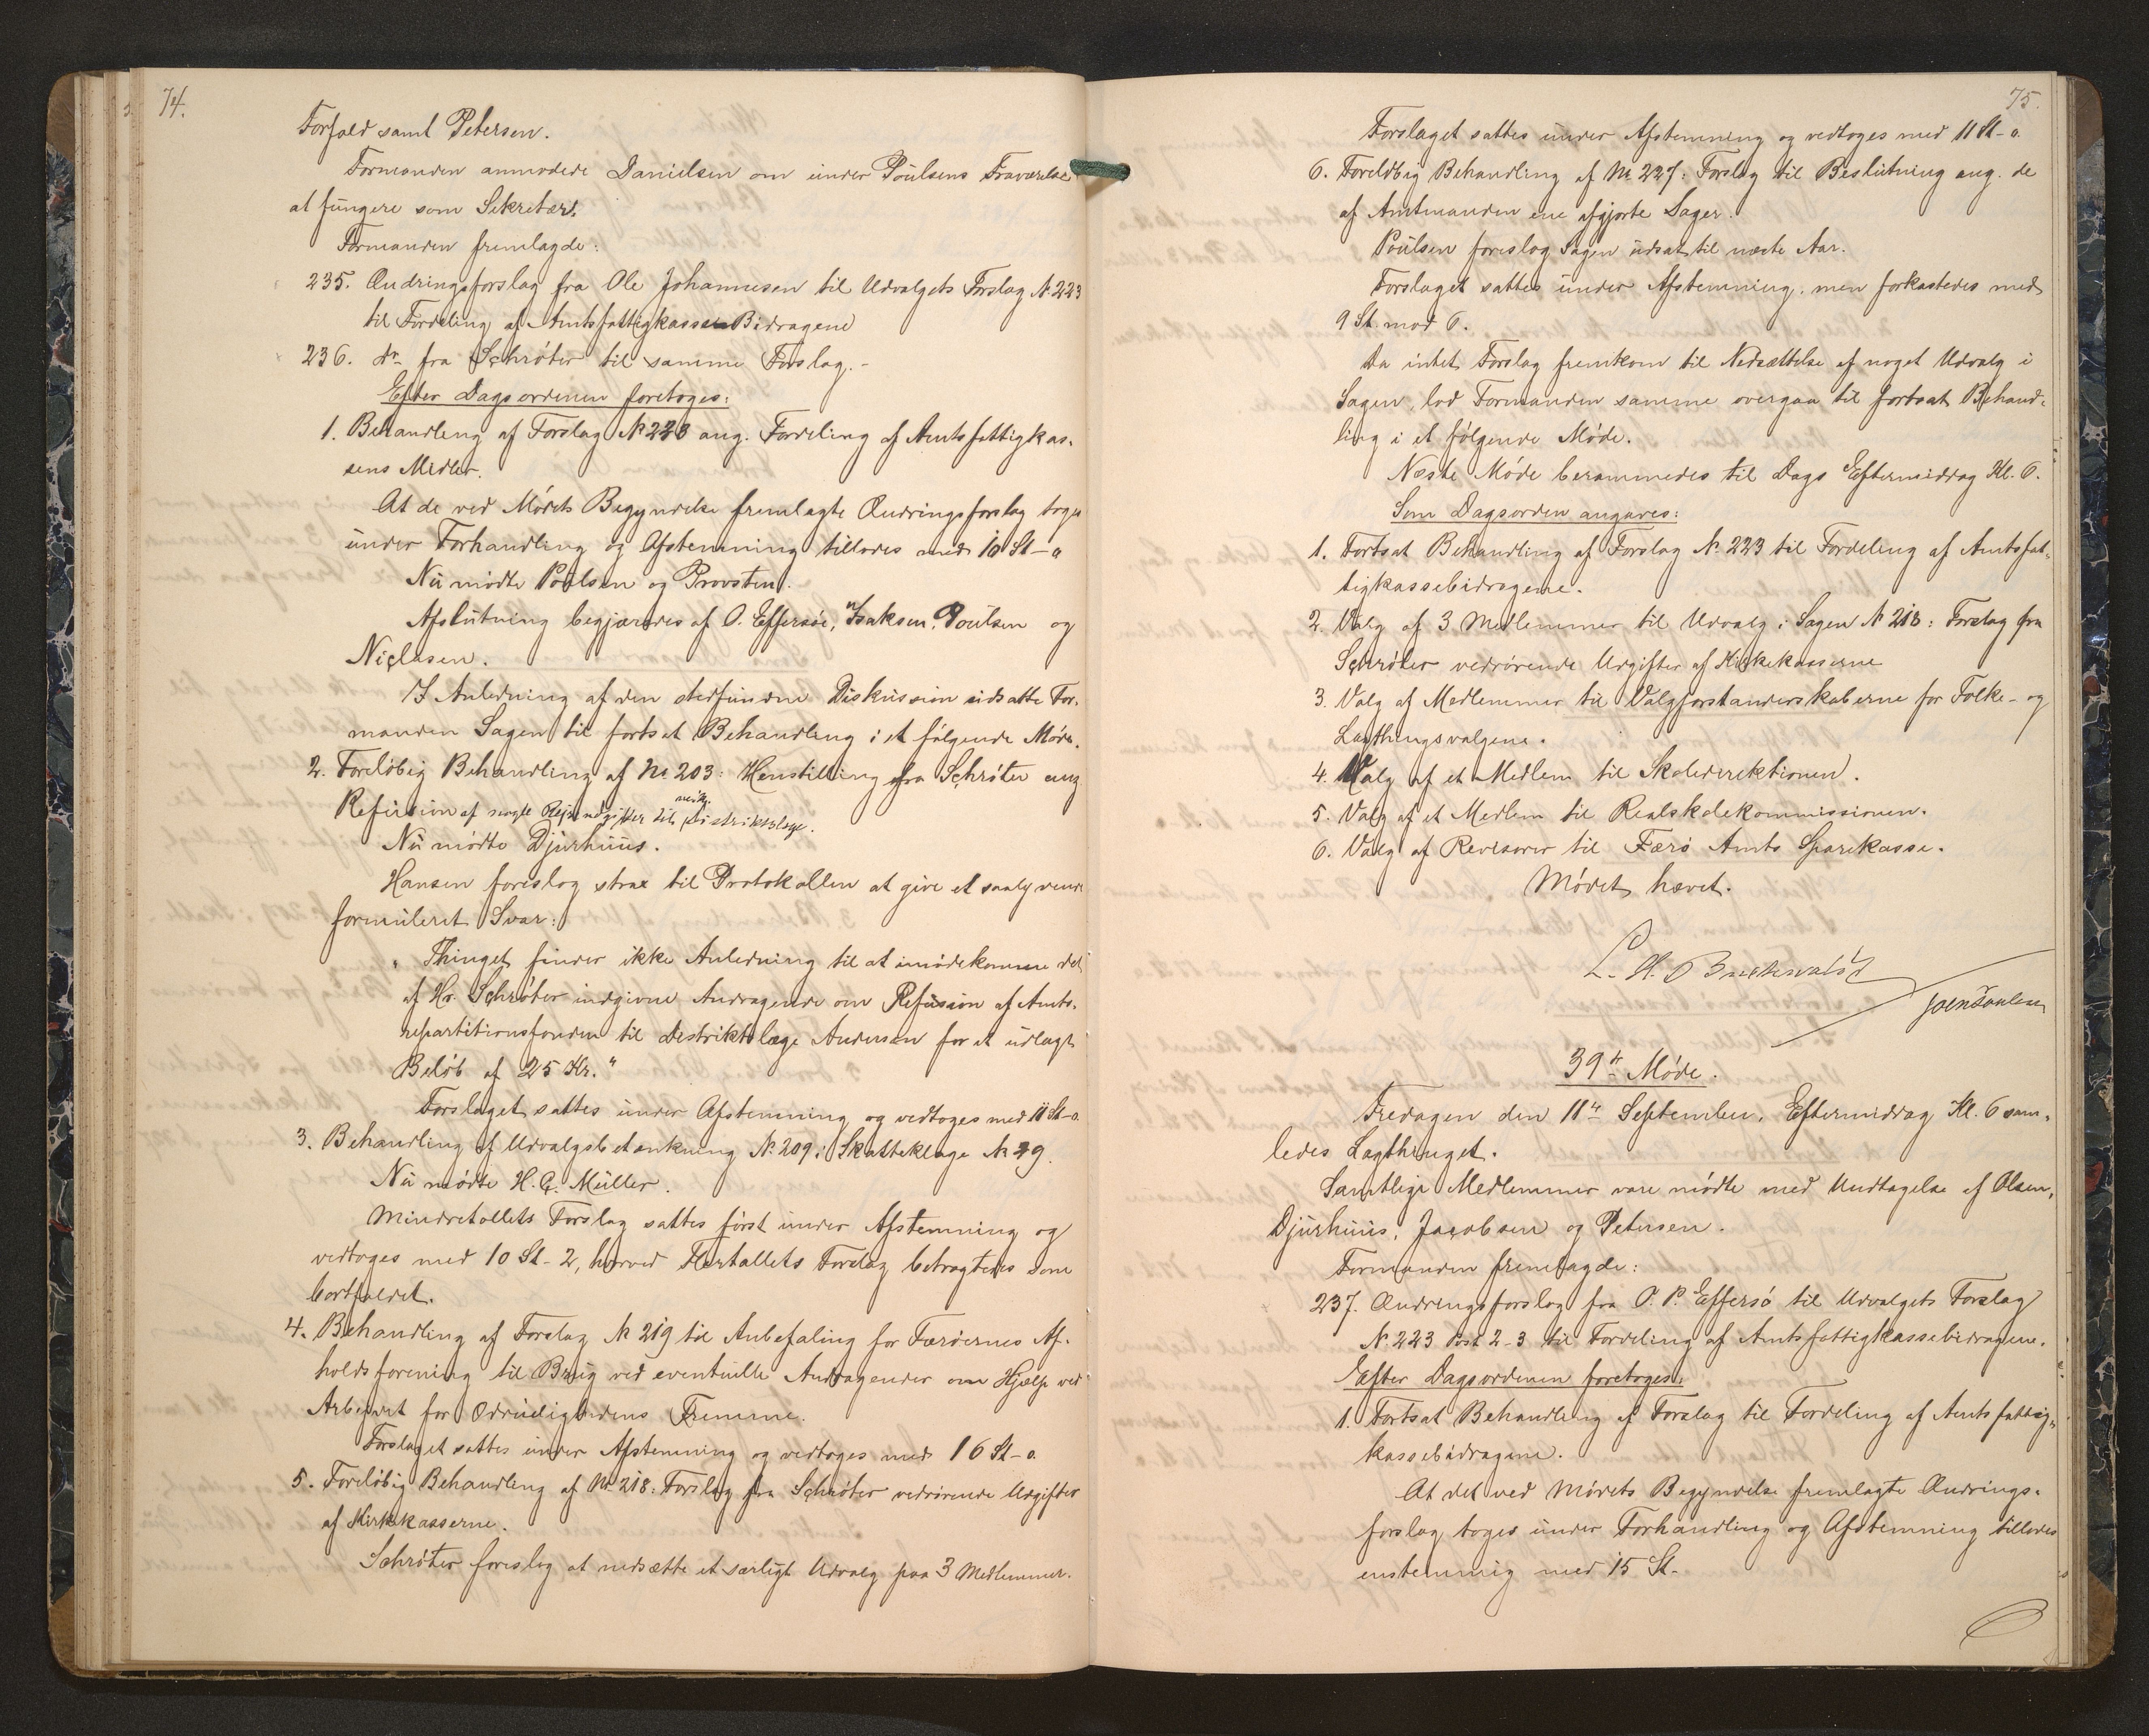 74.
Forfald samt Petersen.
Formanden anmodede Danielsen om under Poulsens Fraværelse
at fungere som Sekretær.
Formanden fremlagde:
235. Ændringsforslag fra Ole Johannesen til Udvalgets Forslag No 223
til Fordeling af Amtsfattigkasse Bidragene
236. do fra Schrøter til samme Forslag.-
Efter Dagsordenen foretoges:
1. Behandling af Forslag No 223 ang. Fordeling af Amtsfattigkas-
sens Midler.
At de ved Mødets Begyndelse fremlagte Ændringsforslag toges
under Forhandling og Afstemning tillodes med 10 St - 0
Nu mødte Poulsen og Provsten.
Afslutning begjæredes af O. Effersøe, Isaksen, Poulsen og
Niclasen.
I Anledning af den stedfundne Diskussion udsatte For-
manden Sagen til fortsat Behandling i et følgende Møde.
2. Foreløbig Behandling af No 203: Henstilling fra Schrøter ang
Refusion af nogle Rejseudgifter til Distriktslæge.
Nu mødte Djurhuus.
Hansen foreslog strax til Protokollen at give et saalydende
formuleret Svar:
"Thinget finder ikke Anledning til at imødekomme det
af Hr. Schrøter indgivne Andragende om Refusion af Amts-
repartitionsfonden til Distriktslæge Andersen for et udlagt
Beløb af 25 Kr."
Forslaget sattes under Afstemning og vedtoges med 11 St-0.
3. Behandling af Udvalgsbetænkning No 209: Skatteklage No 29.
Nu mødte H. C. Müller.
Mindretallets Forslag sattes først under Afstemning og
vedtoges med 10 St - 2, hvorved Flertallets Forslag betragtedes som
bortfaldet.
4. Behandling af Forslag No 219 til Anbefaling for Færøernes Af-
holdsforening til Brug ved eventuelle Andragender om Hjælp ved
Arbejdet for Ædruelighedens Fremme.
Forslaget sattes under Afstemning og vedtoges med 16 St-0.
5. Foreløbig Behandling af No 218: Forslag fra Schrøter vedrørende Udgifter
af Kirkekasserne.
Schrøter foreslog at nedsætte et særligt Udvalg paa 3 Medlemmer.
75.
Forslaget sattes under Afstemning og vedtoges med 11 St-0.
6. Foreløbig Behandling af No 227: Forslag til Beslutning ang. de
af Amtmanden ene afgjorte Sager.
Poulsen foreslog Sagen udsat til næste Aar.
Forslaget sattes under Afstemning, men forkastedes med
9 St mod 6.
Da intet Forslag fremkom til Nedsættelse af noget Udvalg i
Sagen, lod Formanden samme overgaa til fortsat Behand-
ling i et følgende Møde.
Næste Møde berammedes til Dags Eftermiddag Kl. 6.
Som Dagsorden angaves:
1. Fortsat Behandling af Forslag No 223 til Fordeling af Amtsfat-
tigkassebidragene.
2. Valg af 3 Medlemmer til Udvalg i Sagen No 218: Forslag fra
Schrøter vedrørende Udgifter af Kirkekasserne
3. Valg af Medlemmer til Valgforstanderskaberne for Folke- og
Lagthingsvalgene.
4. Valg af et Medlem til Skoledirektionen.
5. Valg af et Medlem til Realskolekommissionen.
6. Valg af Revisorer til Færø Amts Sparekasse.
Mødet hævet.
39te Møde.
Fredagen den 11te September, Eftermiddag Kl. 6 sam-
ledes Lagthinget.
Samtlige Medlemmer vare mødte med Undtagelse af Olsen,
Djurhuus, Jacobsen og Petersen.
Formanden fremlagde:
237. Ændringsforslag fra O. P. Effersø til Udvalgets Forslag
No 223 Post 2-3 til Fordeling af Amtsfattigkassebidragene.
Efter Dagsordenen foretoges:
1. Fortsat Behandling af Forslag til Fordeling af Amtsfattig-
kassebidragene.
At det ved Mødets Begyndelse fremlagte Ændrings-
forslag toges under Forhandling og Afstemning tillodes
enstemmig med 15 St.